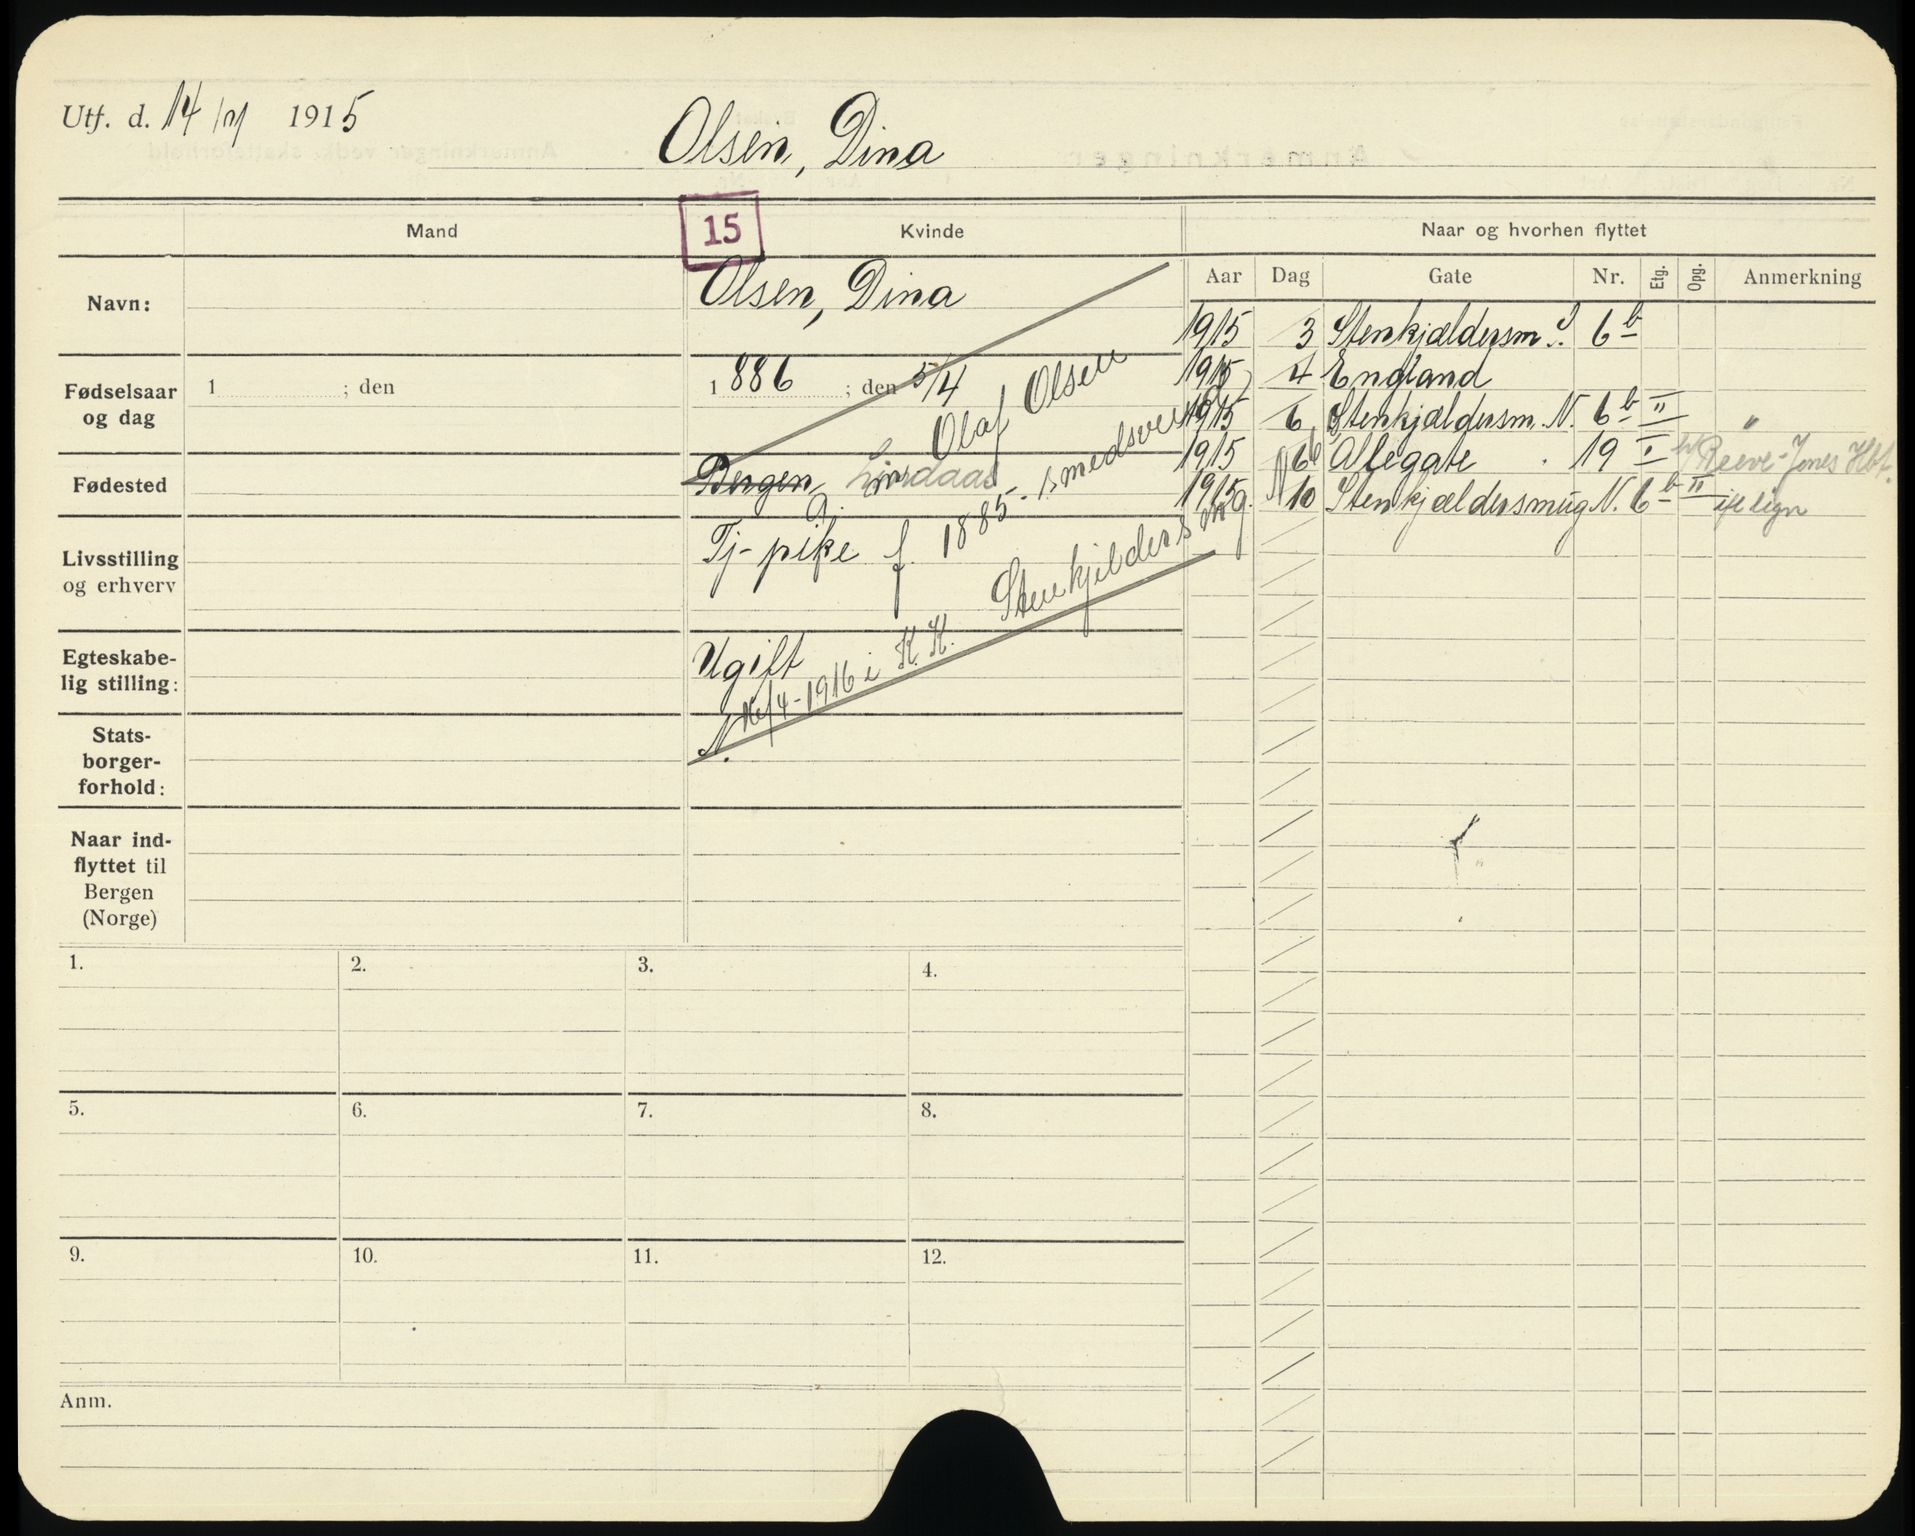 Utf. d. 14/ 1915
Olsen, Dina
15
Mand
Kvinde
Naar og hvorhen flyttet
Aar Dag Gate Nr. Etg. Opg. Anmerkning
Navn:
Olsen, Dina
Fødselsaar
og dag
1 ; den
1886 ; den 5/4
Fødested
Bergen,
Livsstilling
og erhverv
Tj-pike
Egteskabe-
lig stilling:
Ugift
Stats-
borger-
forhold:
Naar ind-
flyttet til
Bergen
(Norge)
G. m. Olaf Olsen
f. 1885. smedsvend
Stenkjeldersmg.
N. /4-1916 i K.K.
1915 3 Stenkjældersm. 6b
1915 4 England
1915 6 Stenkjældersm. N. 6b II "
1915 6 Allegate 19 I Reeve-Jones Hbf.
1915 10 Stenkjældersmug N. 6b II ifl lign
1.
2.
3.
4.
5.
6.
7.
8.
9.
10.
11.
12.
Anm.